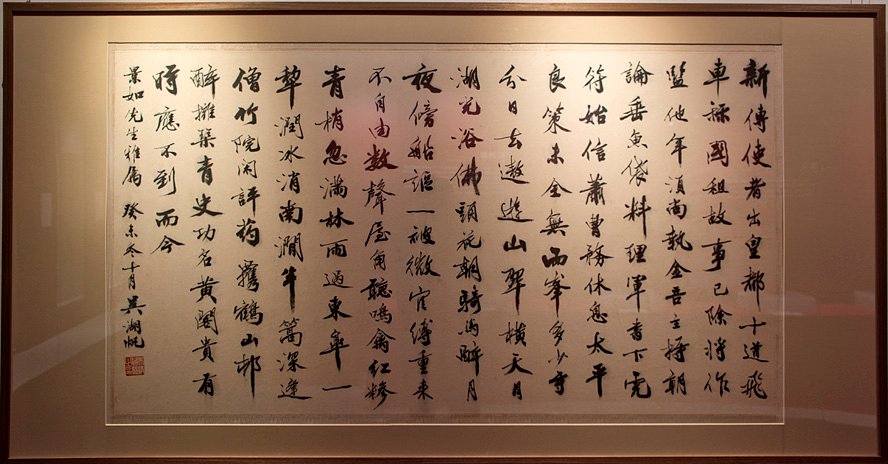 新傳使者出皇都十道飛
車國租故事已除将作
監他年須尚執金吾主持朝
論垂魚袋料理軍書下虎
符始信蕭曹務休息太平
良策未全無西峯多少寺
分日去遨遊山翠橫天目
湖光浴佛頭花朝騎馬醉月
夜傍船謳一被微官縛重来
不自由數聲屋角聽鳴禽紅糝
青梢忽滿林雨過東皋一
犂潤冰消南澗半篙深逢
僧竹院闲評药攜鶴山邨
醉擁琴青史功名黄閣貴有
時應不到而今
景如先生雅屬 癸未冬十月 吴湖帆